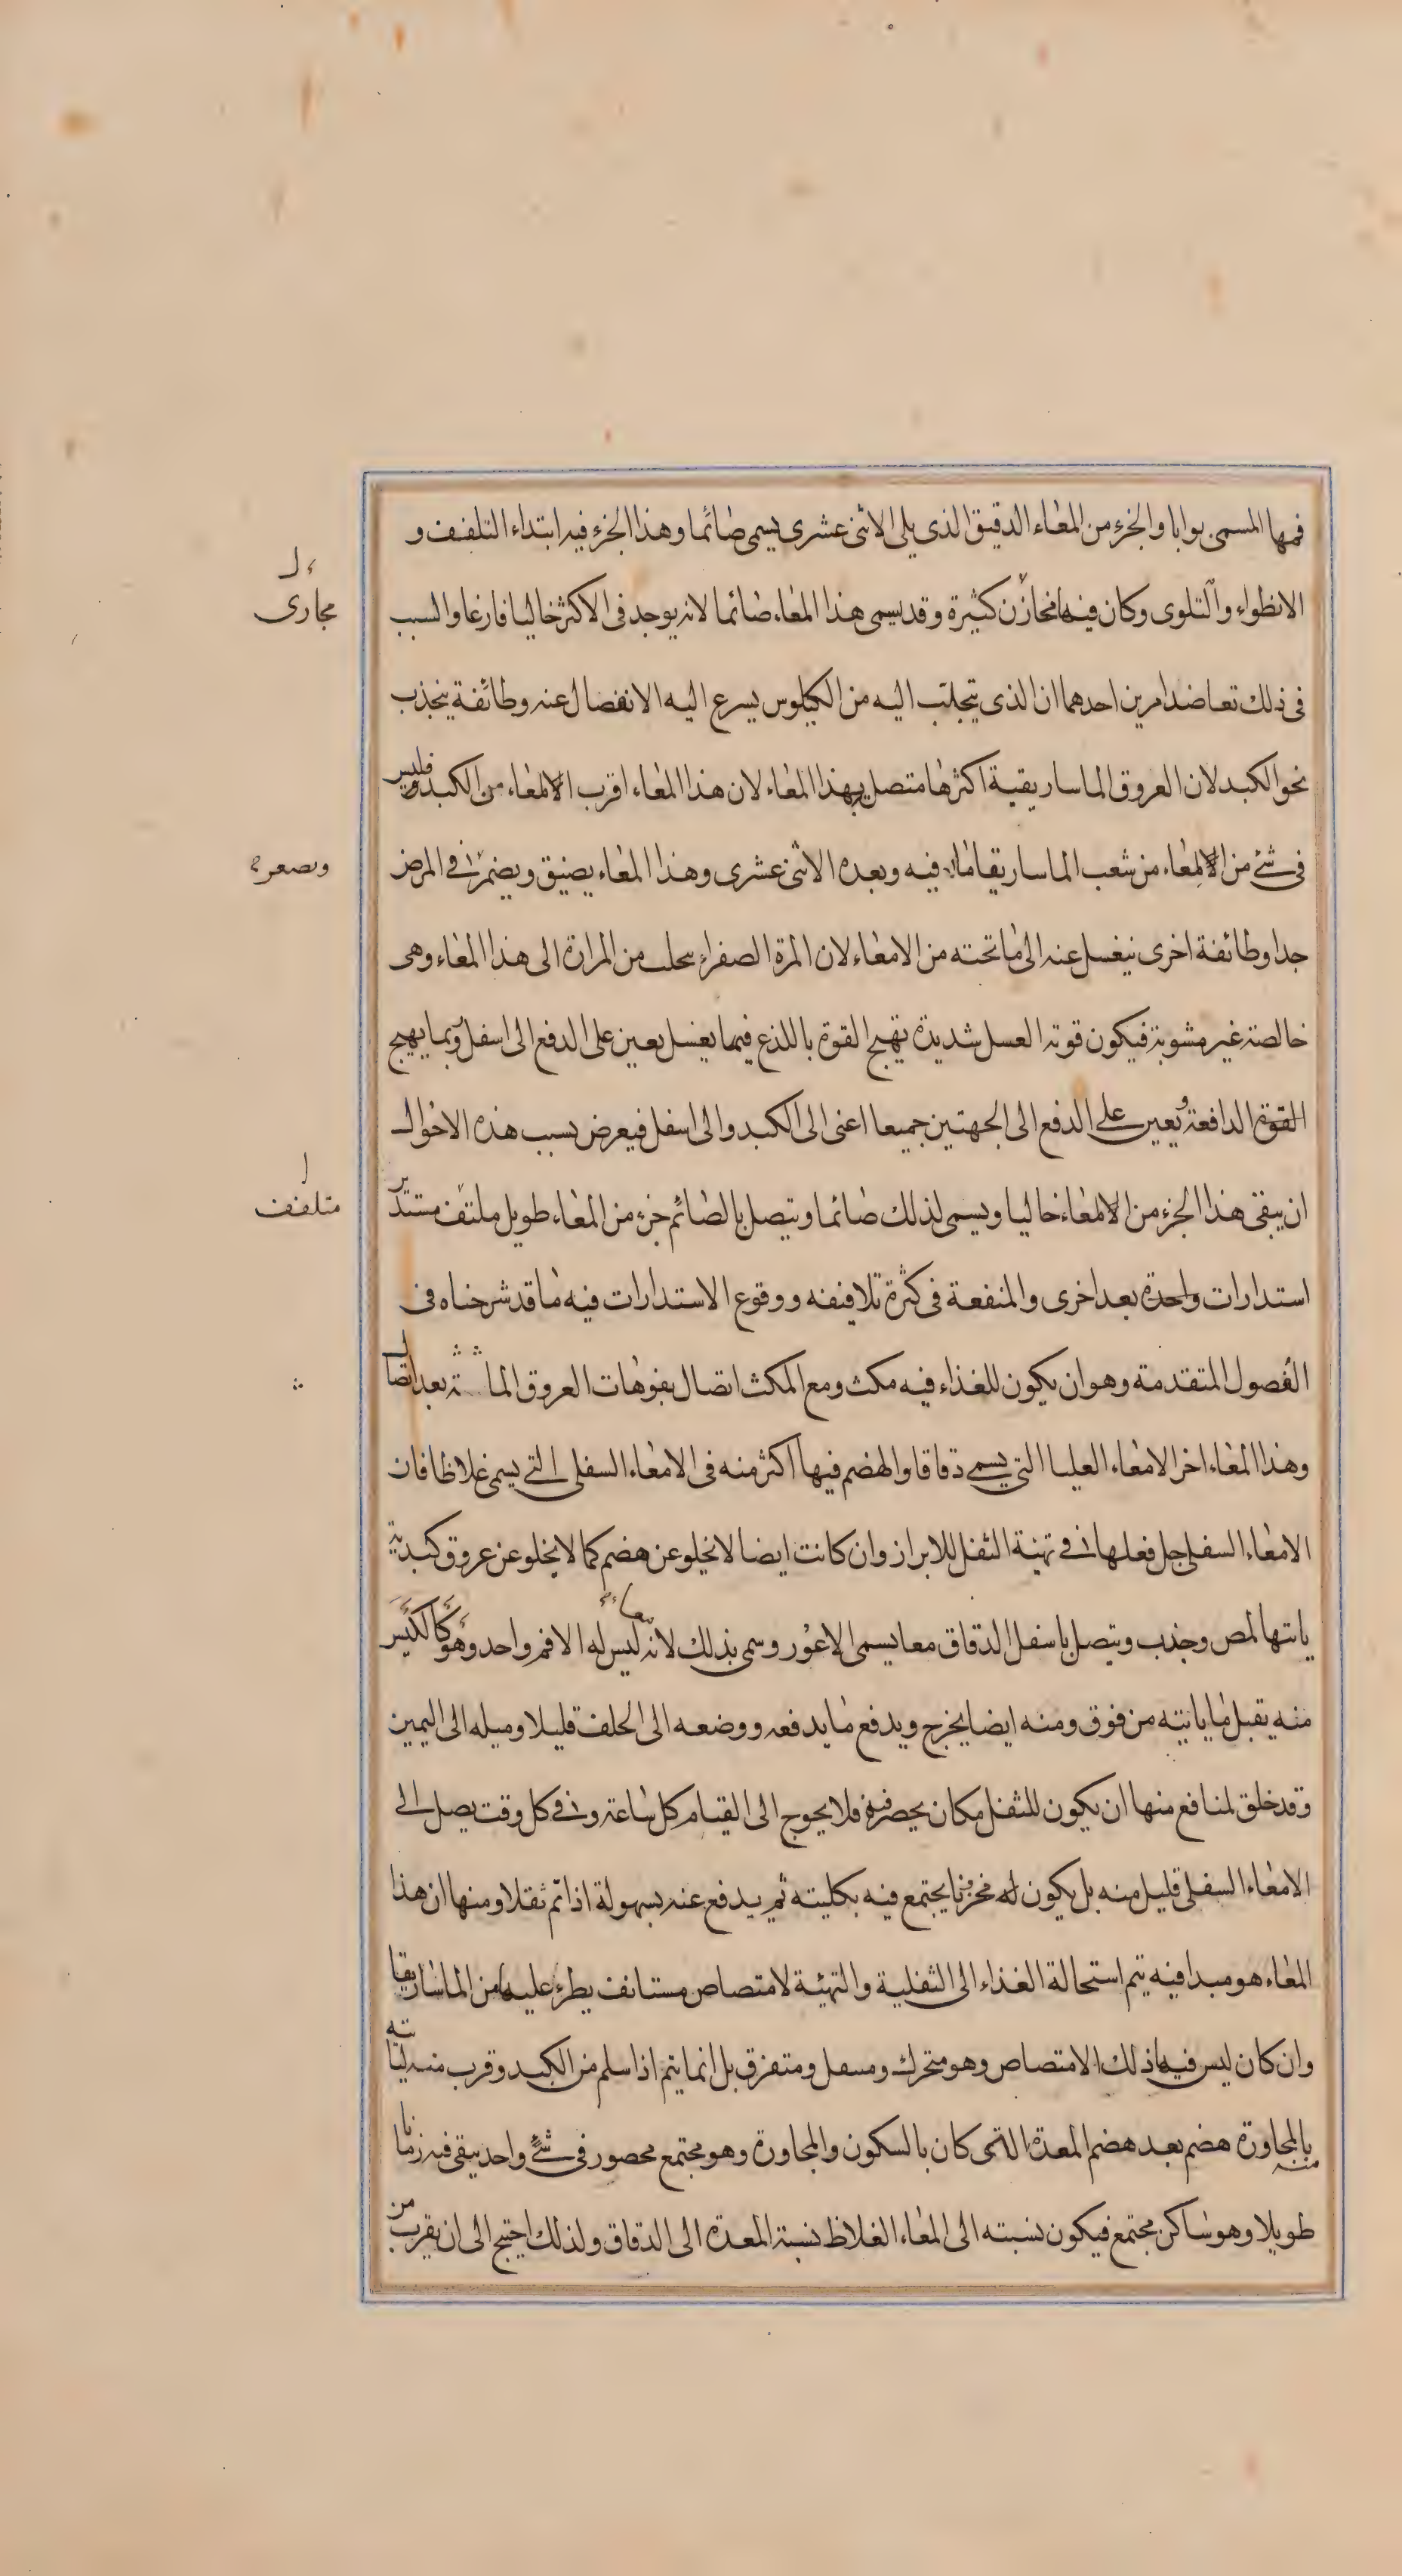 فمها المسمى بوابا والجزء من المعاء الدقيق الذى يلى الاثنى عشرى يسمى صائما وهذا الجزء فيه ابتداء التلفف و
الانطواء والتلوى وكان فيها مخازن كثيرة وقد يسمى هذا المعاء صائما لانه يوجد فى الاكثر خاليا فارغا والسبب
مجارى
فى ذلك تعاضد امرين احدهما ان الذى يتجلب اليه من الكيلوس يسرع اليه الانفصال عنه وطائفة ينجذب
نحو الكبد لان العروق الماساريقية اكثرها متصل بهذا المعاء لان هذا المعاء اقرب الامعاء من الكبد وليس
فى شئ من الامعاء من شعب الماساريقا ما فيه وبعده الاثنى عشرى وهذا المعاء يضيق ويضمر فى المرض
ويصغر
جدا وطائفة اخرى ينغسل عنه الى ما تحته من الامعاء لان المرة الصفراء تتحلب من المرارة الى هذا المعاء وهى
خالصة غير مشوبة فيكون قوته الغسل شديدة تهيج القوة باللذع فيما يغسل يعين على الدفع الى اسفل وبما يهيج
القوة الدافعة ويعين على الدفع الى الجهتين جميعا اعنى الى الكبد والى اسفل فيعرض بسبب هذه الاحوال
ان يبقى هذا الجزء من الامعاء خاليا ويسمى لذلك صائما ويتصل بالصائم جزء من المعاء طويل ملتف مستدير
متلفف
استدارات واحدة بعد اخرى والمنفعة فى كثرة تلافيفه ووقوع الاستدارات فيه ما قد شرحناه فى
الفصول المتقدمة وهو ان يكون للغذاء فيه مكث ومع المكث اتصال بفوهات العروق الماصة بعد اتصال
وهذا المعاء اخر الامعاء العليا التى يسمى دقاقا والهضم فيها اكثر منه فى الامعاء السفلى التى يسمى غلاظا فان
الامعاء السفلى جل فعلها فى تهيئة الثفل للابراز وان كانت ايضا لا تخلو عن هضم كما لا يخلو عن عروق كبدية
ياتيها لمص وجذب ويتصل باسفل الدقاق معا يسمى الاعور وسمى بذلك لانه ليس له الا فم واحد وهو كالكيس
منه يقبل ما ياتيه من فوق ومنه ايضا يخرج ويدفع ما يدفعه ووضعه الى الخلف قليلا وميله الى اليمين
وقد خلق لمنافع منها ان يكون للثفل مكان يحصر فيه فلا يحوج الى القيام كل ساعة وفى كل وقت يصل الى
الامعاء السفلى قليل منه بل يكون له مخزنا يجتمع فيه بكليته ثم يدفع عنه بسهولة اذا تم ثفلا ومنها ان هذا
المعاء هو مبدا فيه يتم استحالة الغذاء الى الثفلية والتهيئة لامتصاص مستانف يطرء عليه من الماساريقا
وان كان ليس فيه ذلك الامتصاص وهو متحرك ومتفرق بل انما يتم اذا سلم من الكبد وقرب منه لياتيه
منه بالمجاورة هضم بعد هضم المعدة التى كان بالسكون والمجاورة وهو مجتمع محصور فى شئ واحد يبقى فيه زمانا
طويلا وهو ساكن مجتمع فيكون نسبته الى المعاء الغلاظ نسبة المعدة الى الدقاق ولذلك احتيج الى ان يقرب من